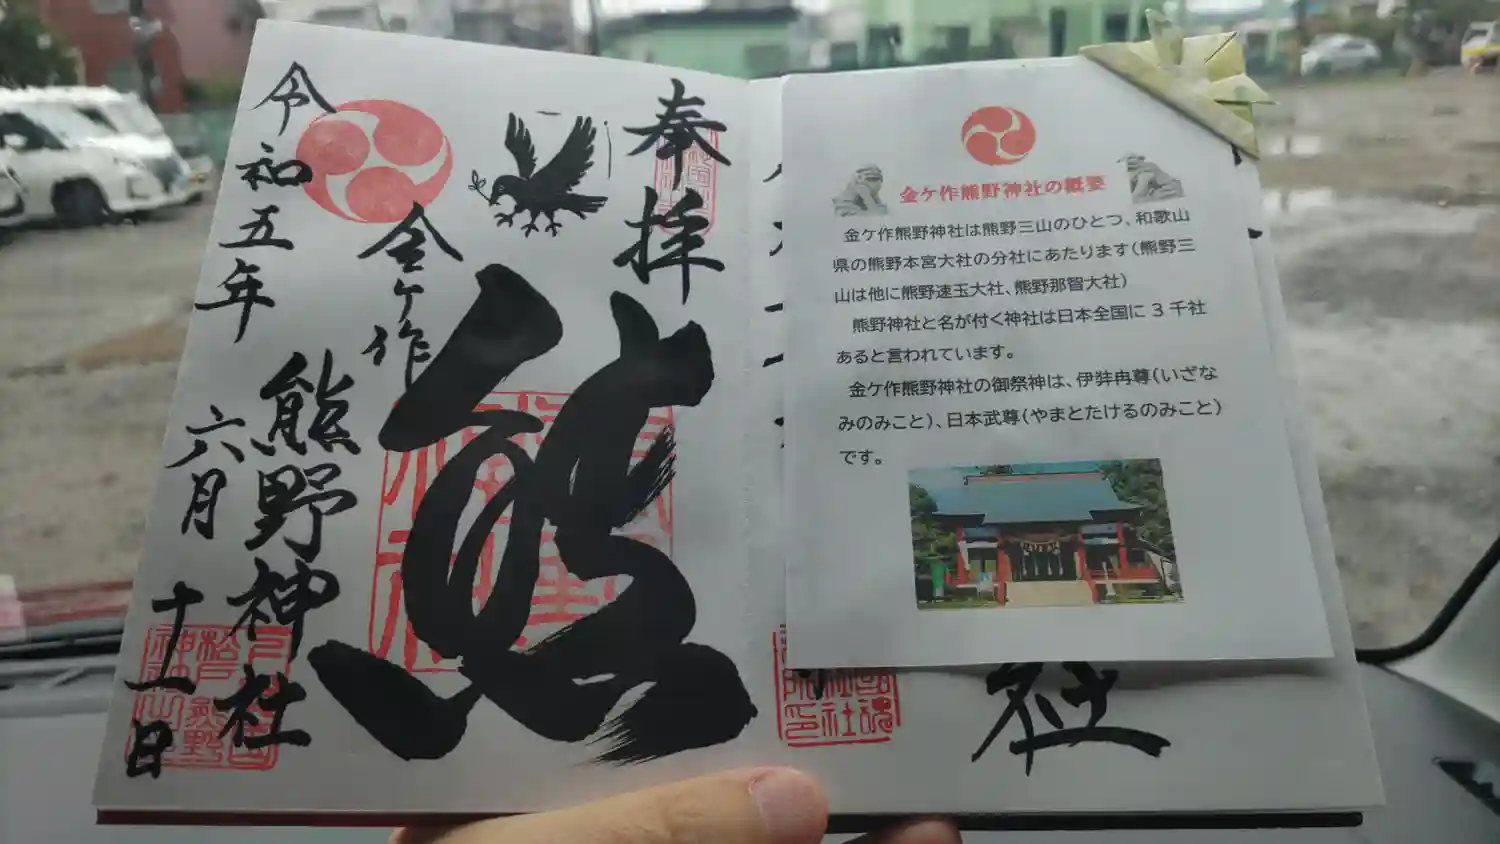 奉拝
熊
金ケ作
熊野神社
令和五年
六月
十一日
金ケ作熊野神社の概要
金ケ作熊野神社は熊野三山のひとつ、和歌山
県の熊野本宮大社の分社にあたります(熊野三
山は他に熊野速玉大社、熊野那智大社)
熊野神社と名が付く神社は日本全国に3千社
あると言われています。
金ケ作熊野神社の御祭神は、伊弉冉尊(いざな
みのみこと)、日本武尊(やまとたけるのみこと)
です。
社